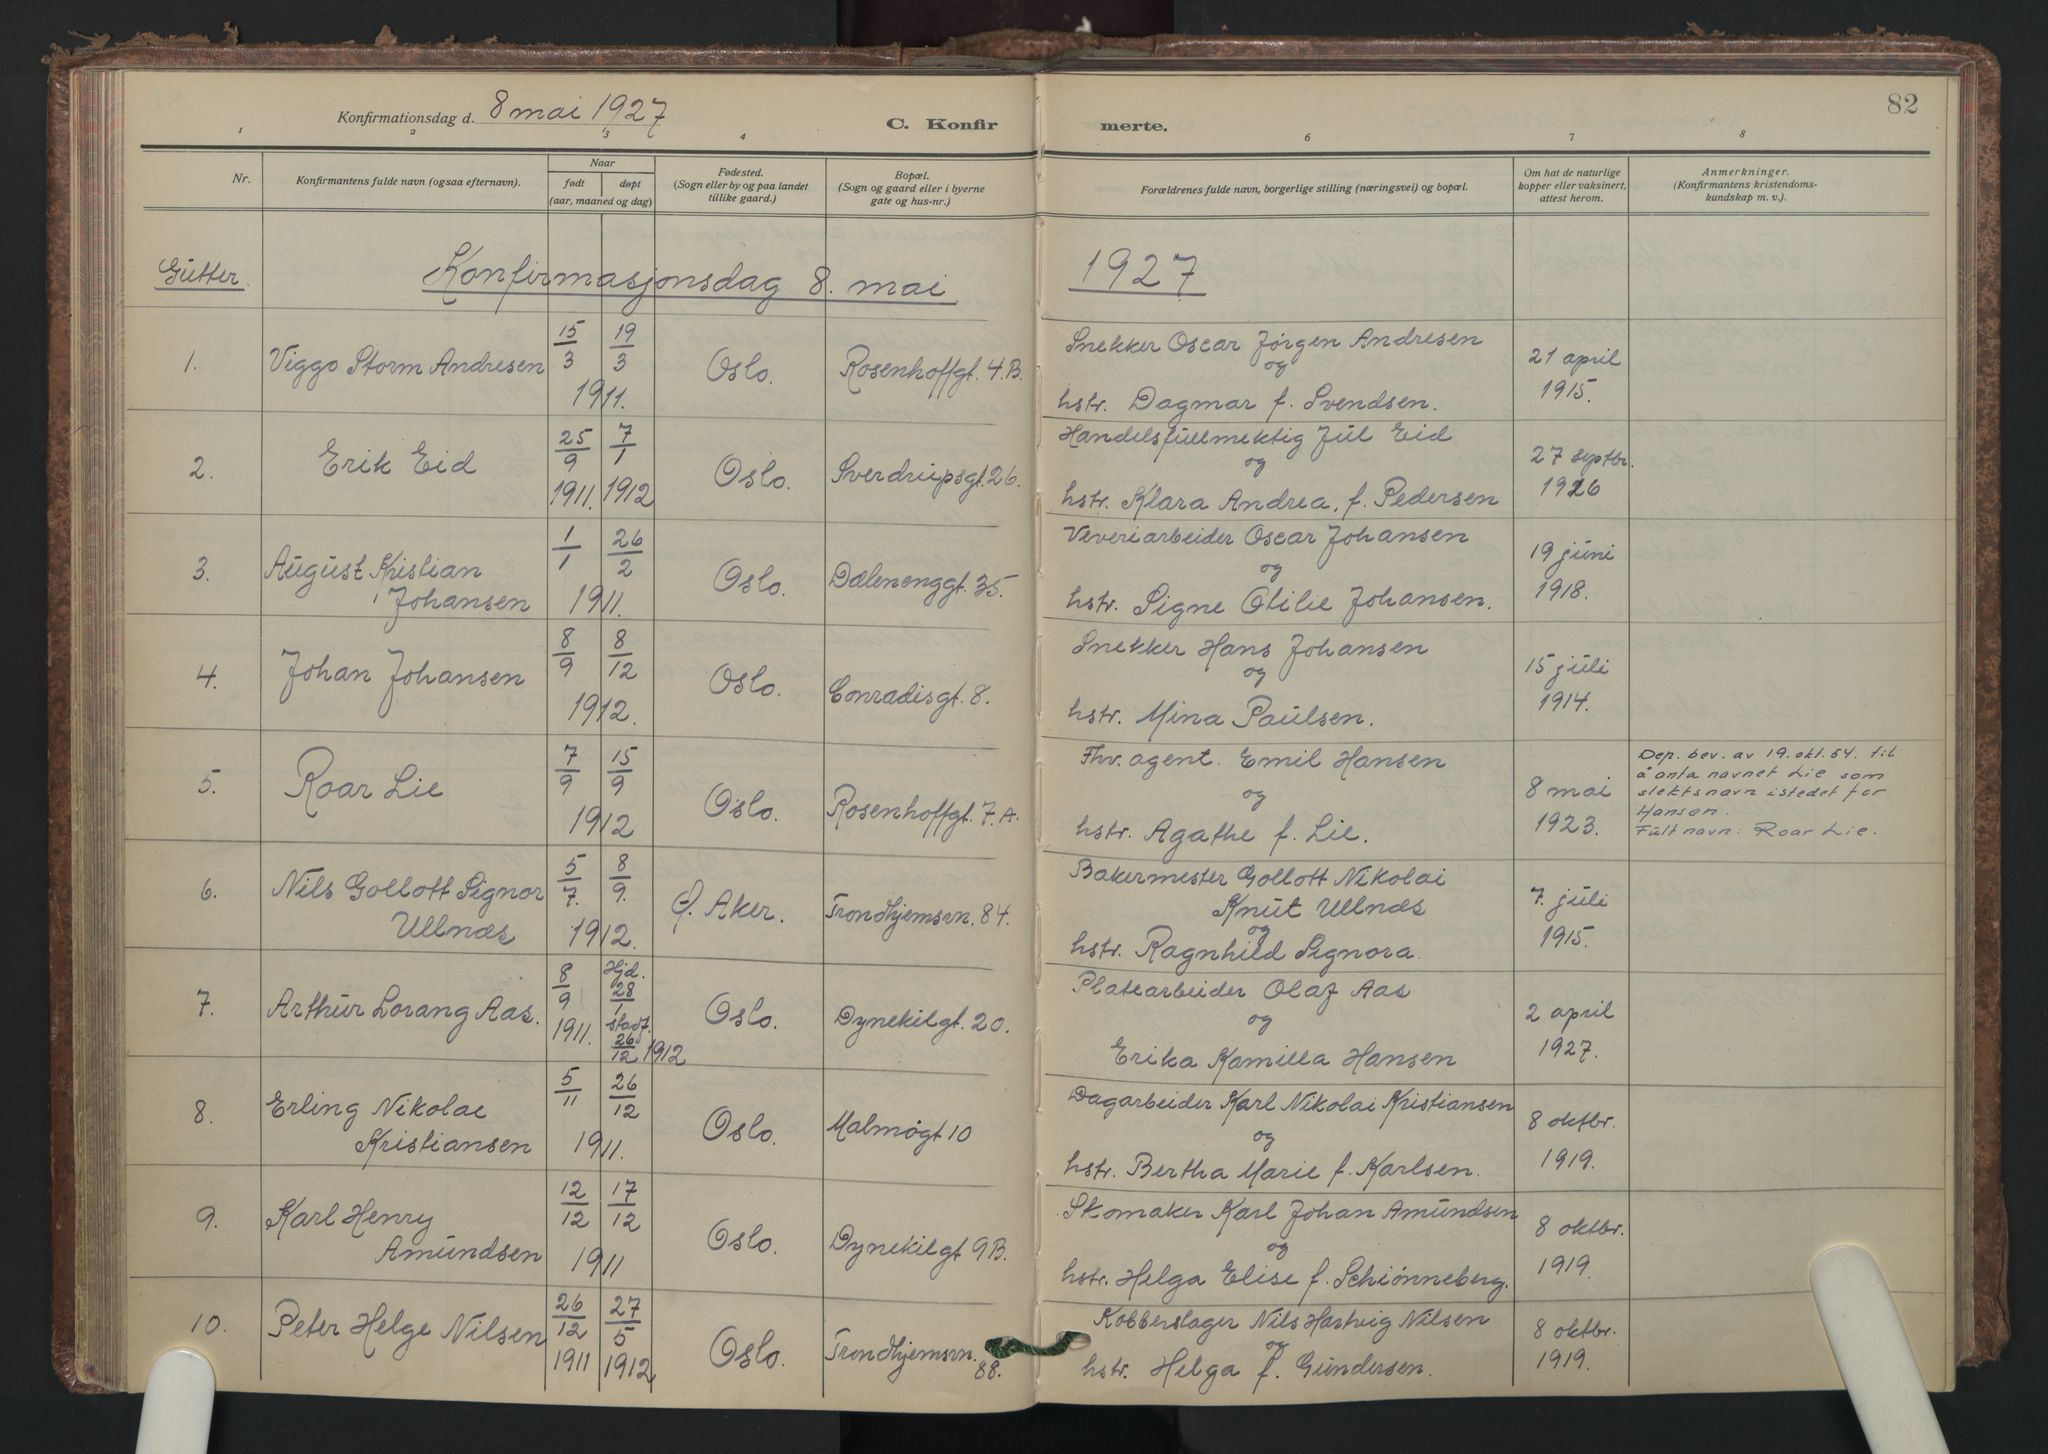 82
Konfirmationsdag d. 8 mai 1927
C. Konfir merte.
1 2 3 4 6 7 8
Nr. Konfirmantens fulde navn (ogsaa efternavn).
Naar
født døpt
(aar, maaned og dag)
Fødested.
(Sogn eller by og paa landet
tillike gaard.)
Bopæl.
(Sogn og gaard eller i byerne
gate og hus-nr.)
Forældrenes fulde navn, borgerlige stilling (næringsvei) og bopæl.
Om hat de naturlige
kopper eller vaksinert,
attest herom.
Anmerkninger.
(Konfirmantens kristendoms-
kundskap m. v.).
Gutter. Konfirmasjonsdag 8. mai 1927
1. Viggo Storm Andresen
15/3 19/3
1911.
Oslo.
Rosenhoffgt. 4.B.
Snekker Oscar Jørgen Andresen
og
hstr. Dagmar f. Svendsen.
21 april
1915.
2. Erik Eid
25/9 7/1
1911. 1912
Oslo.
Sverdrupsgt. 26.
Handelsfullmektig Jul Eid
og
hstr. Klara Andrea, f. Pedersen
27 septbr.
1926
3. August Kristian
Johansen
1/1 26/2
1911.
Oslo.
Dælenenggt. 35.
Veveriarbeider Oscar Johansen
og
hstr. Signe Otilie Johansen.
19 juni
1918.
4. Johan Johansen
8/9 8/12
1912.
Oslo.
Conradisgt. 8.
Snekker Hans Johansen
og
hstr. Mina Paulsen.
15 juli
1914.
5. Roar Lie
7/9 15/9
1912
Oslo.
Rosenhoffgt. 7.A.
Fhv. agent. Emil Hansen
og
hstr. Agathe f. Lie.
8 mai
1923.
Dep. bev. av 19. okt. 54. til
å anta navnet Lie som
slektsnavn istedet for
Hansen.
Fult navn: Roar Lie.
6. Nils Gollott Signor
Ullnæs
5/7. 8/9.
1912.
Ø. Aker.
Trondhjemsvn. 84.
Bakermester Gollott Nikolai
Knut Ullnæs
og
hstr. Ragnhild Signora.
7. juli
1915.
7. Arthur Lorang Aas.
8/9
1911.
Hjd.
28/1
stadf.
26/12 1912
Oslo.
Dynekilgt. 20.
Platearbeider Olaf Aas
og
Erika Kamilla Hansen
2 april
1927.
8. Erling Nikolai
Kristiansen
5/11 26/12
1911.
Oslo.
Malmøgt 10
Dagarbeider Karl Nikolai Kristiansen
og
hstr. Bertha Marie f. Karlsen.
8 oktbr.
1919.
9. Karl Henry
Amundsen
12/12 17/12
1911
Oslo.
Dynekilgt 9B.
Skomaker Karl Johan Amundsen
og
hstr. Helga Elise f. Schiønneberg.
8 oktbr.
1919.
10. Peter Helge Nilsen
26/12 27/5
1911 1912
Oslo.
Trondhjemsvn.
88.
Kobberslager Nils Hartvig Nilsen
og
hstr. Helga f. Gundersen.
8 oktbr.
1919.